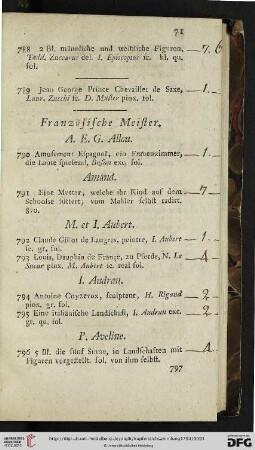 71
788 2 Bl. männliche und weibliche Figuren, 7. 6
Tadd. Zuccarus del. I. Episcopius sc. kl. qu.
fol.
789 Jean George Prince Chevailler de Saxe, 1.
Laur. Zucchi sc. D. Müller pinx. fol.
Französische Meister.
A. E. G. Allou.
790 Amusement Espagnol, ein Frauenzimmer, 1.
die Laute spielend, exc. fol.
Amand.
791 Eine Mutter, welche ihr Kind auf dem 7
Schooße füttert, vom Mahler selbst radirt.
8vo.
M. et I. Aubert.
792 Claude Gillot de Langres, peintre, I. Aubert 1
sc. gr. fol.
793 Louis, Dauphin de France, zu Pferde, N. Le 4.
Sueur pinx. M. Aubert sc. real fol.
I. Audran.
794 Antoine Coyzevox, sculpteur, H. Rigaud 2
pinx. gr. fol.
795 Eine italiänische Landschaft, I. Audran exc. 2.
gr. qu. fol.
P. Aveline.
796 5 Bl. die fünf Sinne, in Landschaften mit 4.
Figuren vorgestellt. fol. von ihm selbst.
797
UNIVERSITÄTS-
BIBLIOTHEK
HEIDELBERG
Gefördert durch die
DFG